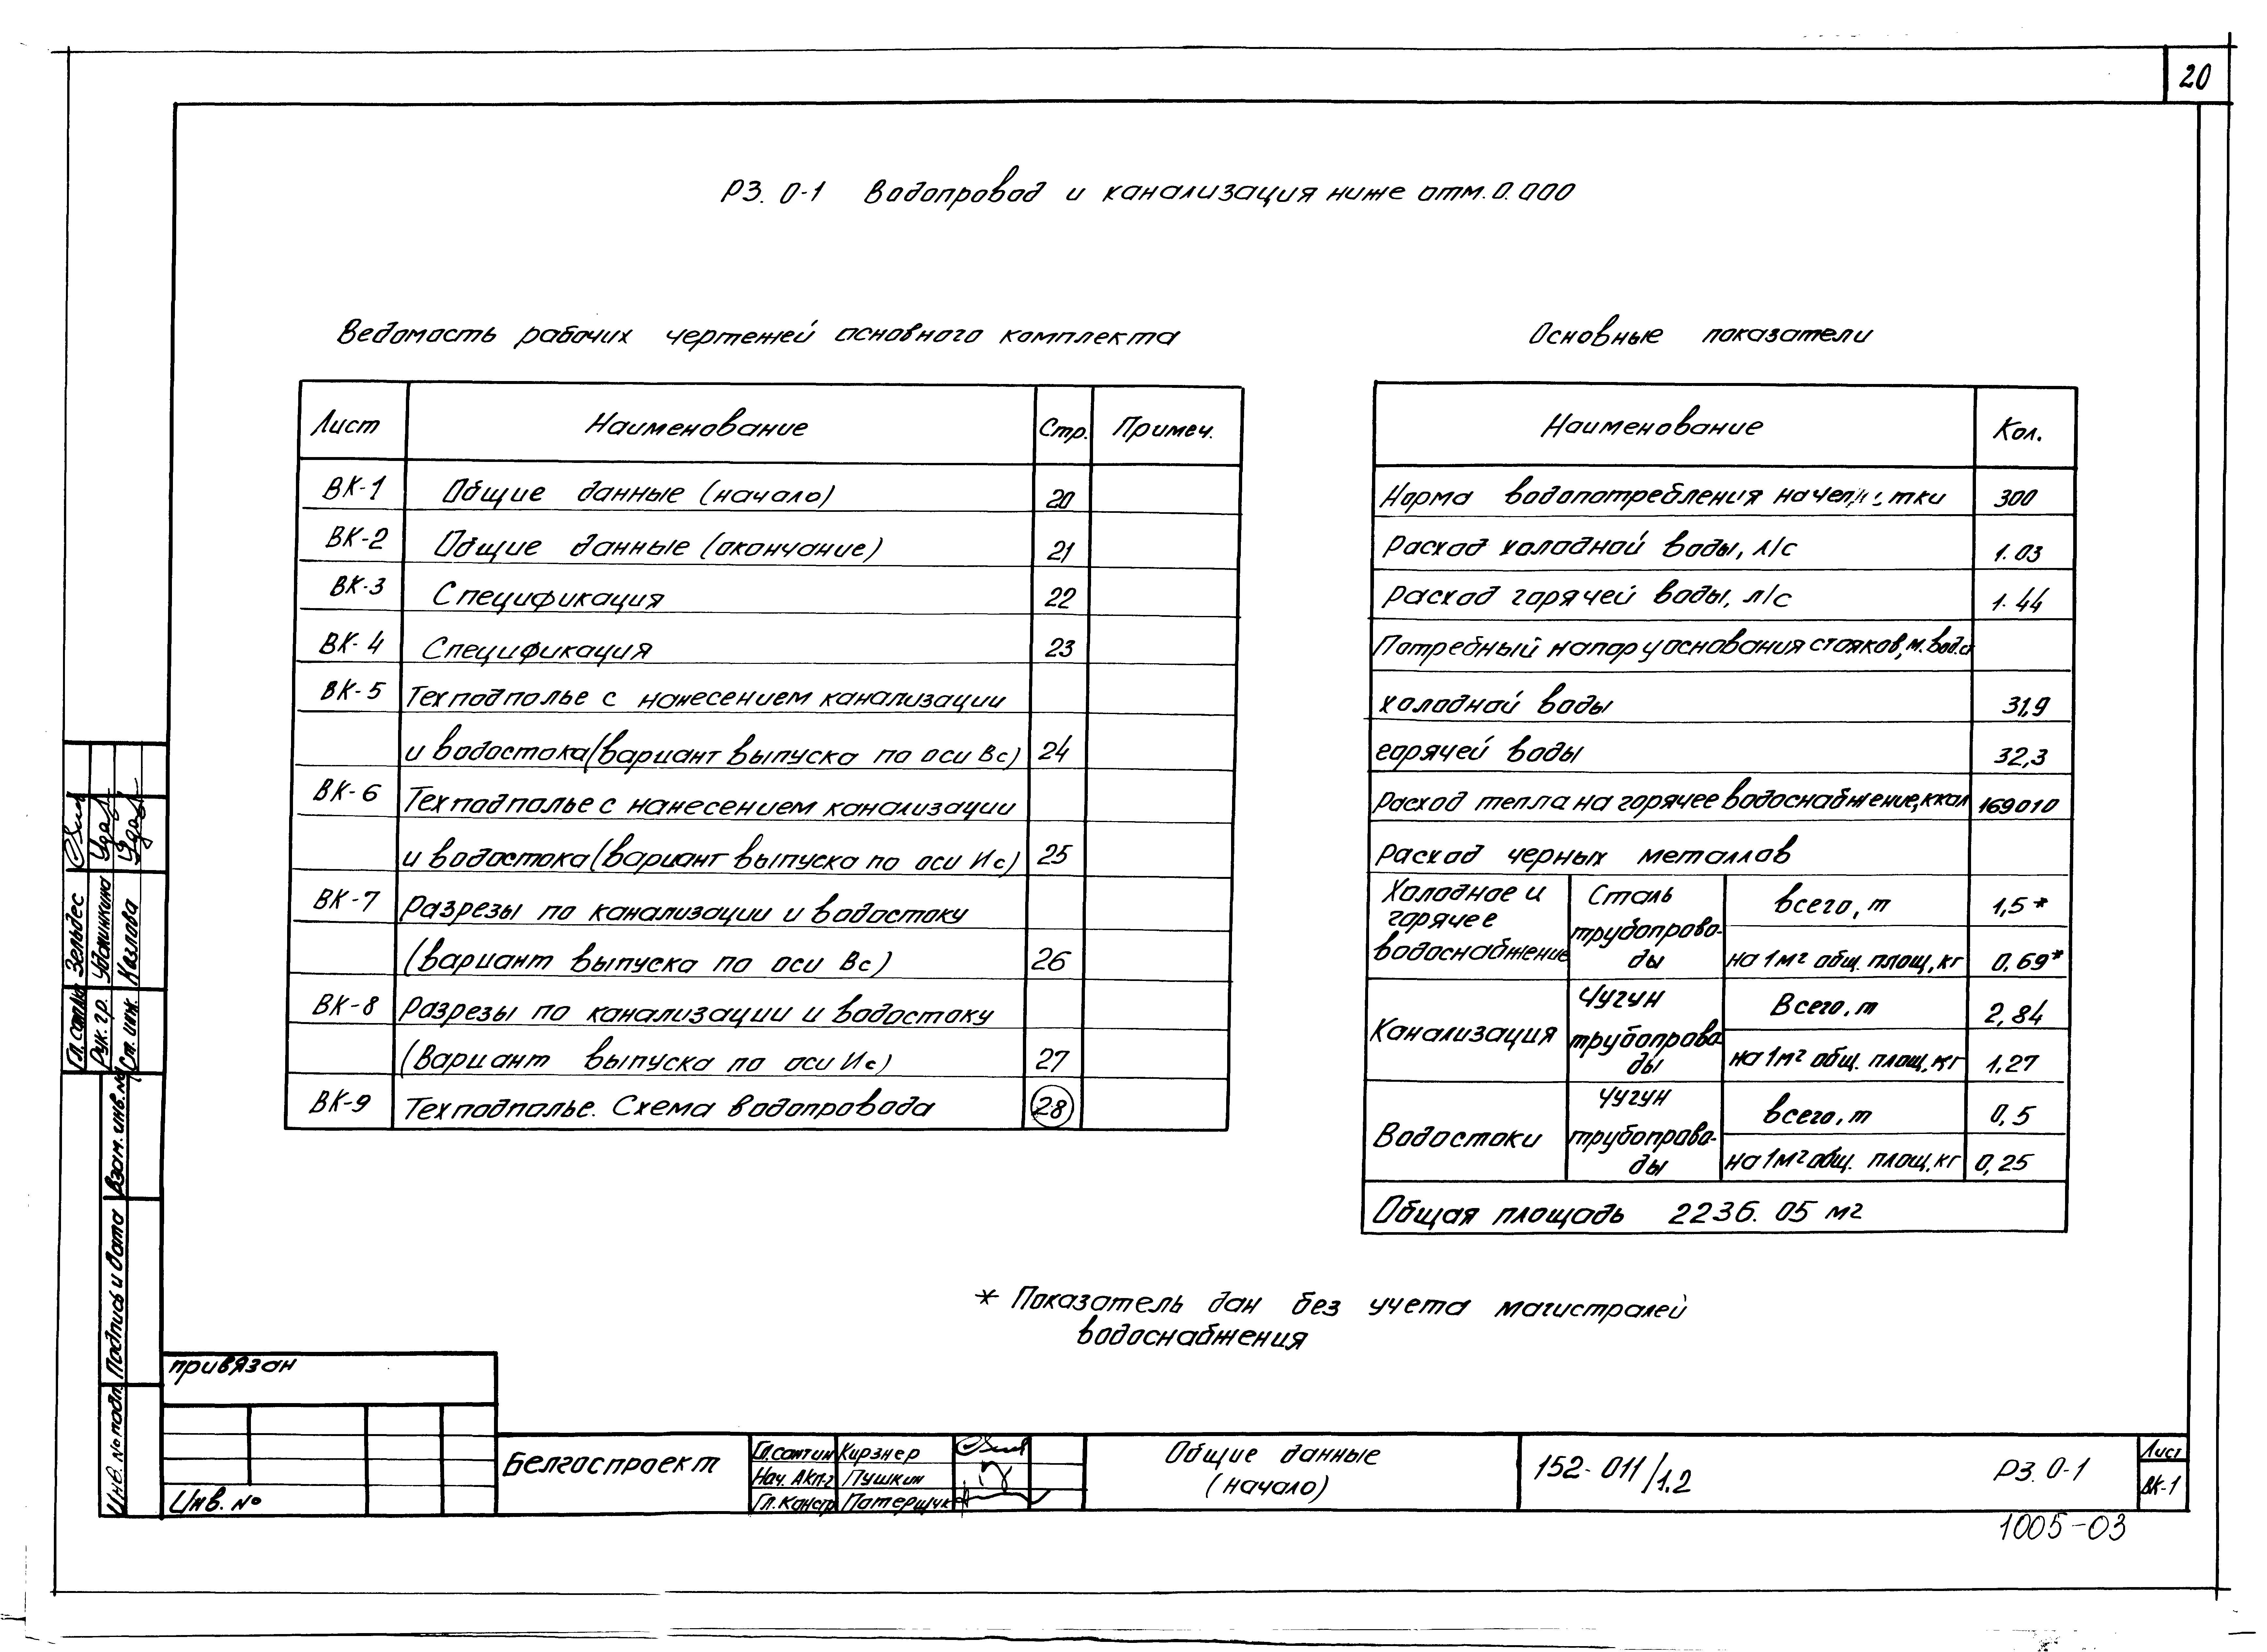 20
РЗ. 0-1 Водопровод и канализация ниже отм. 0.000
Ведомость рабочих чертежей основного комплекта
Лист Наименование Стр. Примеч.
ВК-1 Общие данные (начало) 20
ВК-2 Общие данные (окончание) 21
ВК-3 Спецификация 22
ВК-4 Спецификация 23
ВК-5 Техподполье с нанесением канализации
и водостока (вариант выпуска по оси Вс) 24
ВК-6 Техподполье с нанесением канализации
и водостока (вариант выпуска по оси Ис) 25
ВК-7 Разрезы по канализации и водостоку
(вариант выпуска по оси Вс) 26
ВК-8 Разрезы по канализации и водостоку
(Вариант выпуска по оси Ис) 27
ВК-9 Техподполье. Схема водопровода 28
Основные показатели
Наименование Кол.
Норма водопотребления на 300
Расход холодной воды, л/с 1.03
Расход горячей воды, л/с 1.44
Потребный напор у основания стояков, м.вод.ст
холодной воды 31,9
горячей воды 32,3
Расход тепла на горячее водоснабжение, ккал 169010
Расход черных металлов
Холодное и
горячее
водоснабжение
Сталь
трубопрово-
ды
всего, т 1,5*
на 1м2 общ. площ, кг 0,69*
Канализация
Чугун
трубопрово
ды
Всего, т 2,84
на 1м2 общ. площ, кг 1,27
Водостоки
Чугун
трубопрово-
ды
всего, т 0,5
на 1м2 общ. площ. кг 0,25
Общая площадь 2236.05 м2
* Показатель дан без учета магистралей
водоснабжения
Гл. сантех Зельдес
Рук. гр. Удочинкина
Ст. инж. Козлова
Взам. инв. №
Подпись и дата
Инв. № подл.
привязан
Инв. №
Белгоспроект
Гл. сантин Кирзнер
Нач. АКП-2 Пушкин
Гл. констр Патерщук
Общие данные
(начало)
152-011/1.2
РЗ. 0-1
Лист
ВК-1
1005-03